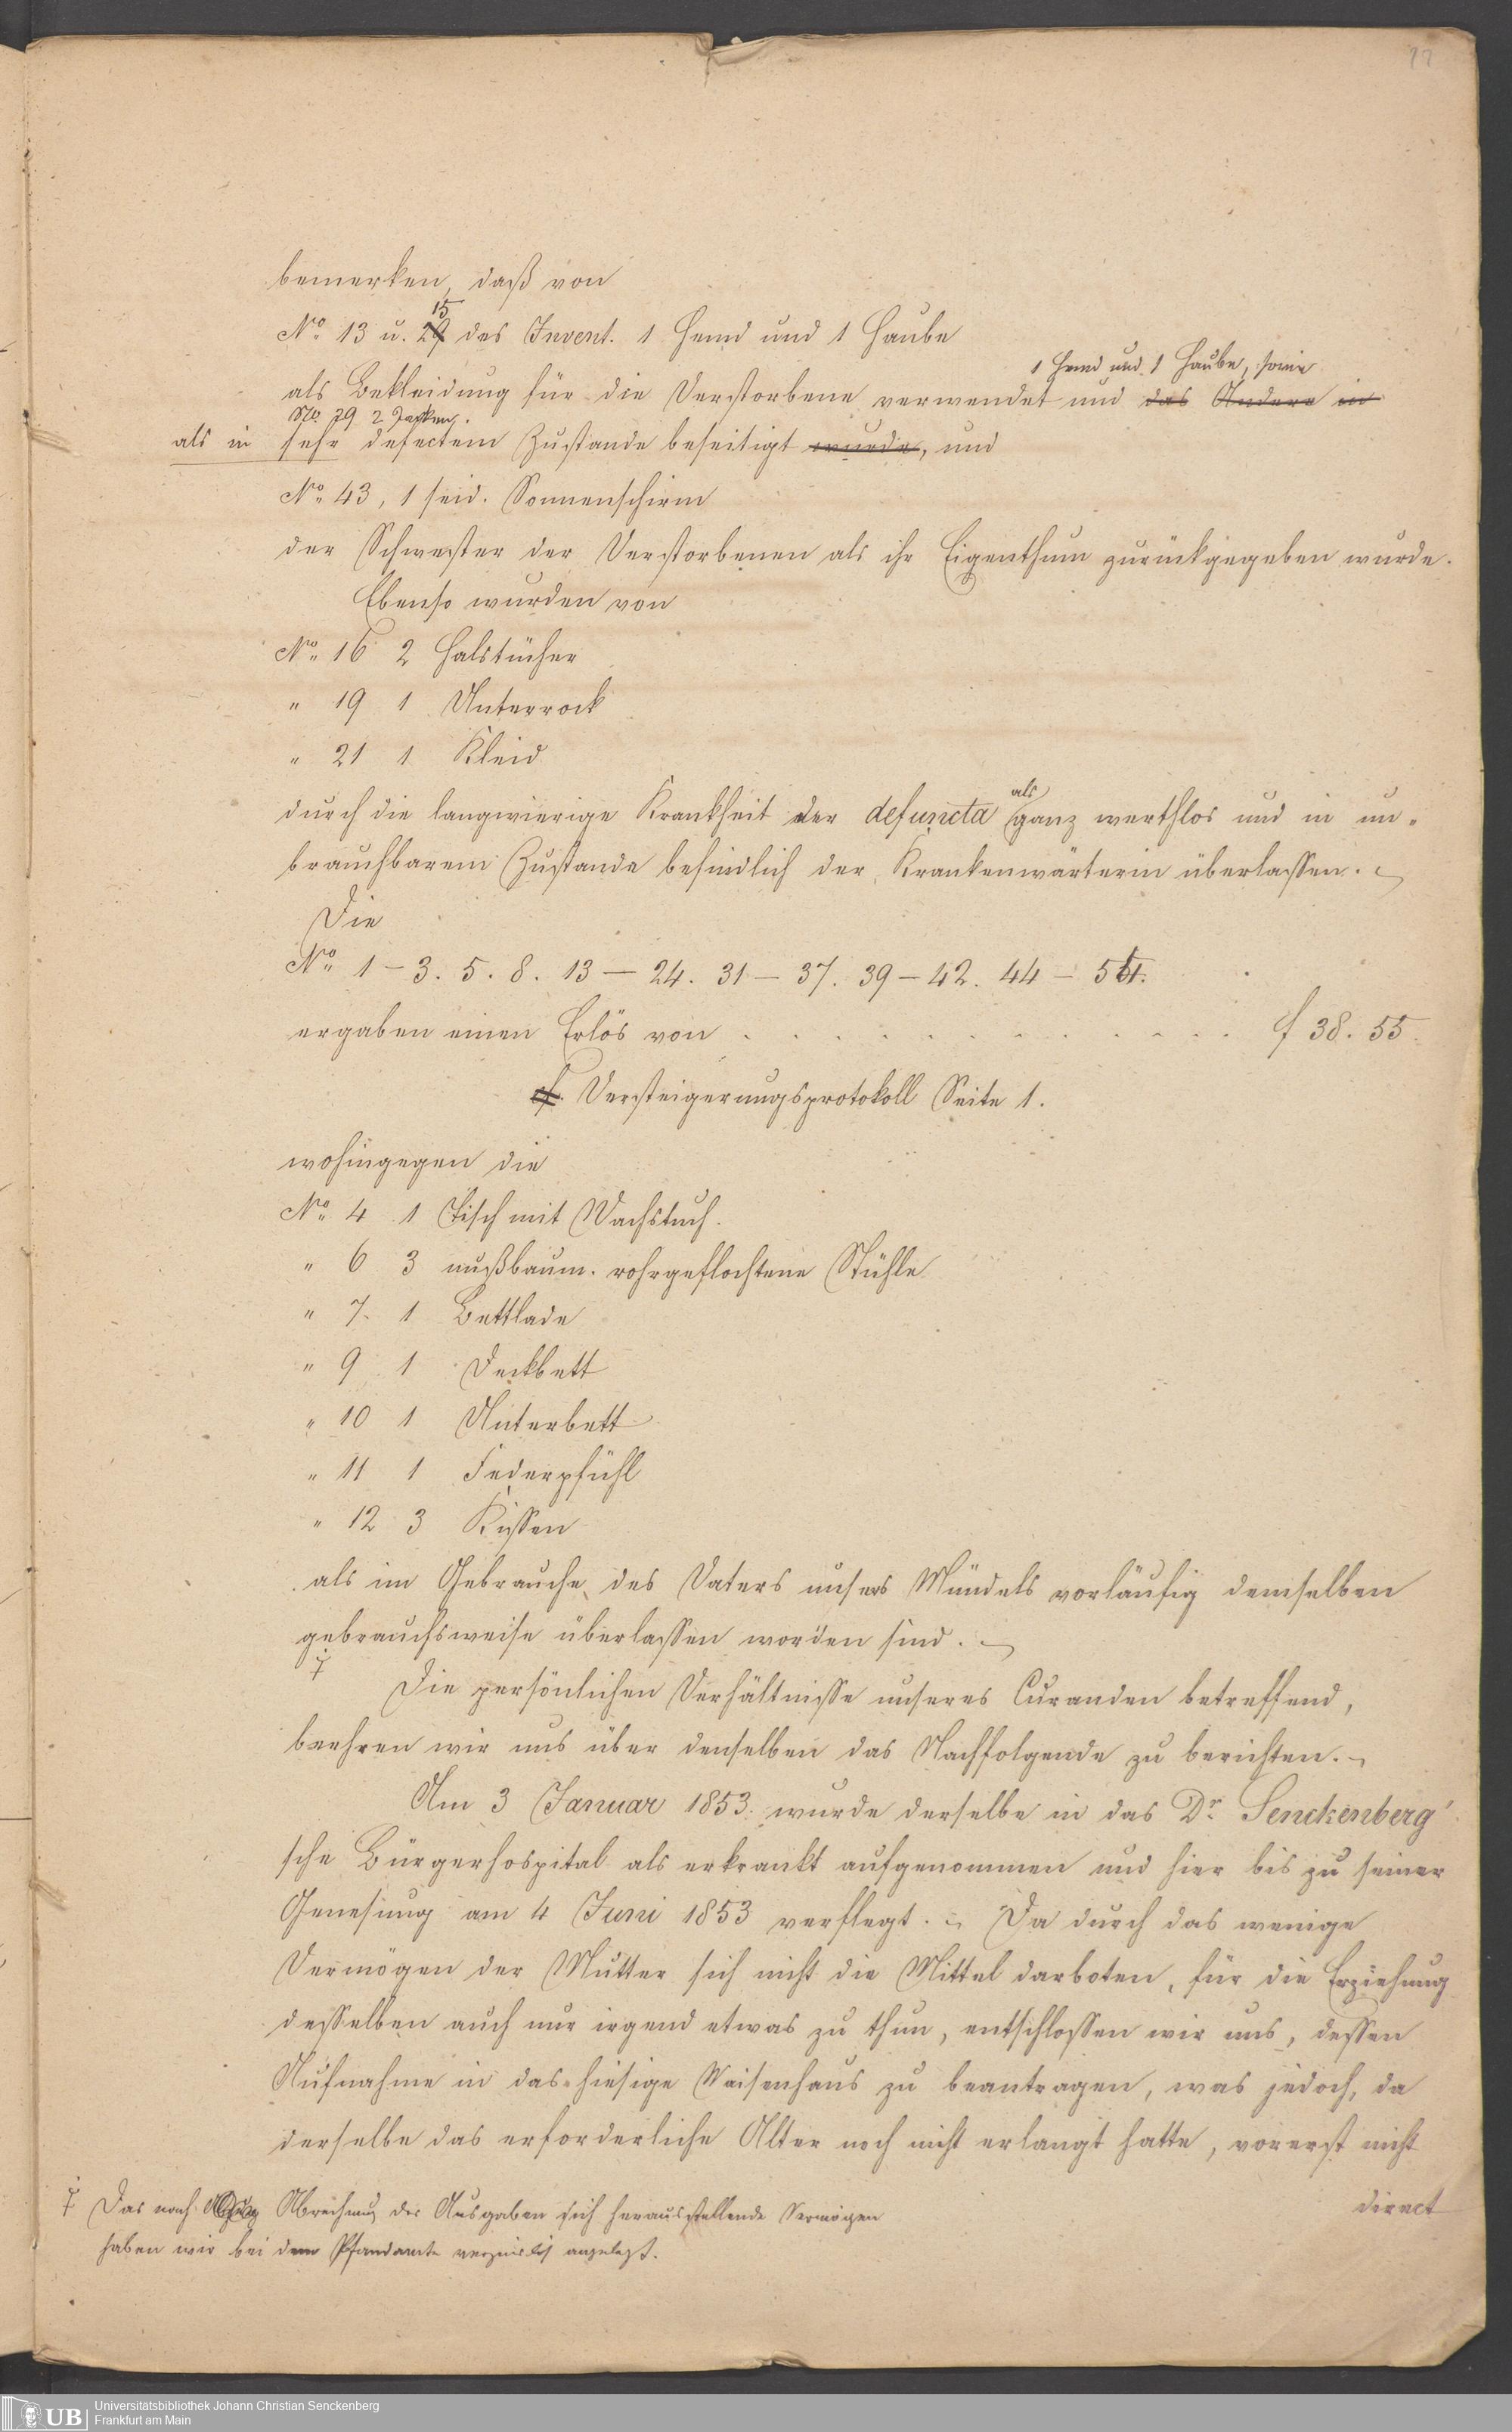 bemerken, daß von
15
No. 13 u. 29 des Invent. 1 Hemd und 1 Haube
1 Hemd und 1 Haube, sowie
als Bekleidung für die Verstorbene verwendet und das Andere in
No. 29 2 Jacken.
als in sehr defectem Zustande beseitigt wurde, und
No. 43, 1 seid. Sonnenschirm
der Schwester der Verstorbenen als ihr Eigenthum zurückgegeben wurde.
Ebenso wurden von
No. 16 2 Halstücher
" 19 1 Unterrock
" 21 1 Kleid
als
durch die langwierige Krankheit der defuncta ganz werthlos und in un-
brauchbarem Zustande befindlich der Krankenwärterin überlassen.
Die
No. 1-3. 5. 8. 13-24. 31-37. 39-42. 44-
ergaben einen Erlös von . . . . . . . . . . . f 38. 55.
cf. Versteigerungsprotokoll Seite 1.
wohingegen die
No. 4 1 Tisch mit Wachstuch.
" 6 3 nußbaum. rohrgeflochtene Stühle
" 7. 1 Bettlade
" 9 1 Deckbett
" 10 1 Unterbett
" 11 1 Federpfühl
" 12 3 Kissen
als im Gebrauche des Vaters unsers Mündels vorläufig demselben
gebrauchsweise überlassen worden sind.
Die persönlichen Verhältnisse unseres Curanden betreffend,
beehren wir uns über denselben das Nachfolgende zu berichten.
Am 3 Januar 1853 wurde derselbe in das Dr. Senckenberg'
sche Bürgerhospital als erkrankt aufgenommen und hier bis zu seiner
Genesung am 4 Juni 1853 verpflegt. Da durch das wenige
Vermögen der Mutter sich nicht die Mittel darboten, für die Erziehung
desselben auch nur irgend etwas zu thun, entschlossen wir uns, dessen
Aufnahme in das hiesige Waisenhaus zu beantragen, was jedoch, da
derselbe das erforderliche Alter noch nicht erlangt hatte, vorerst nicht
direct
Das nach Abrechnung der Ausgaben sich herausstellende Vermögen
haben wir bei dem Pfandamte verzinslich angelegt.
Universitätsbibliothek Johann Christian Senckenberg
UB Frankfurt am Main